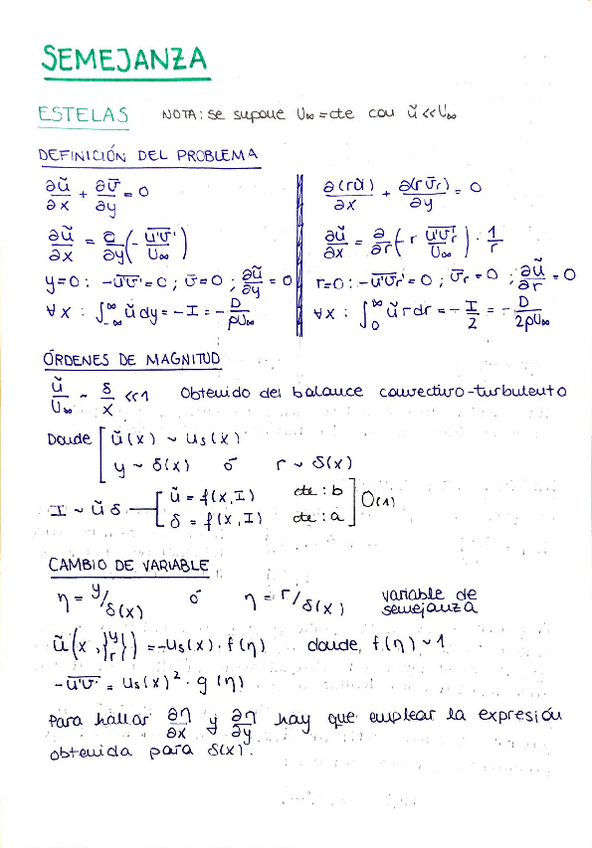 SEMEJANZA
ESTELAS NOTA: se supone U∞ = cte con ũ << U∞
DEFINICIÓN DEL PROBLEMA
∂ũ/∂x + ∂v̄/∂y = 0
∂ũ/∂x = ∂/∂y (- u'v'/U∞)
y=0: -u'v' = 0 ; v̄ = 0 ; ∂ũ/∂y = 0
∀x : ∫_{-∞}^{∞} ũ dy = -I = - D/ρU∞
∂(rũ)/∂x + ∂(r v̄r)/∂y = 0
∂ũ/∂x = ∂/∂r (- r u'v'r/U∞) · 1/r
r=0: -u'v'r = 0 ; v̄r = 0 ; ∂ũ/∂r = 0
∀x : ∫_0^∞ ũ r dr = - I/2 = - D/2ρU∞
ÓRDENES DE MAGNITUD
ũ/U∞ ~ δ/x << 1 Obtenido del balance convectivo-turbulento
Donde [ ũ(x) ~ us(x)
y ~ δ(x) ó r ~ δ(x)
I ~ ũ δ — [ ũ = f(x,I) cte: b ] O(1)
δ = f(x,I) cte: a
CAMBIO DE VARIABLE
η = y/δ(x) ó η = r/δ(x) variable de semejanza
ũ(x,{y r}) = -us(x) · f(η) donde, f(η) ~ 1
-u'v' = us(x)² · g(η)
Para hallar ∂η/∂x y ∂η/∂y hay que emplear la expresión
obtenida para δ(x).